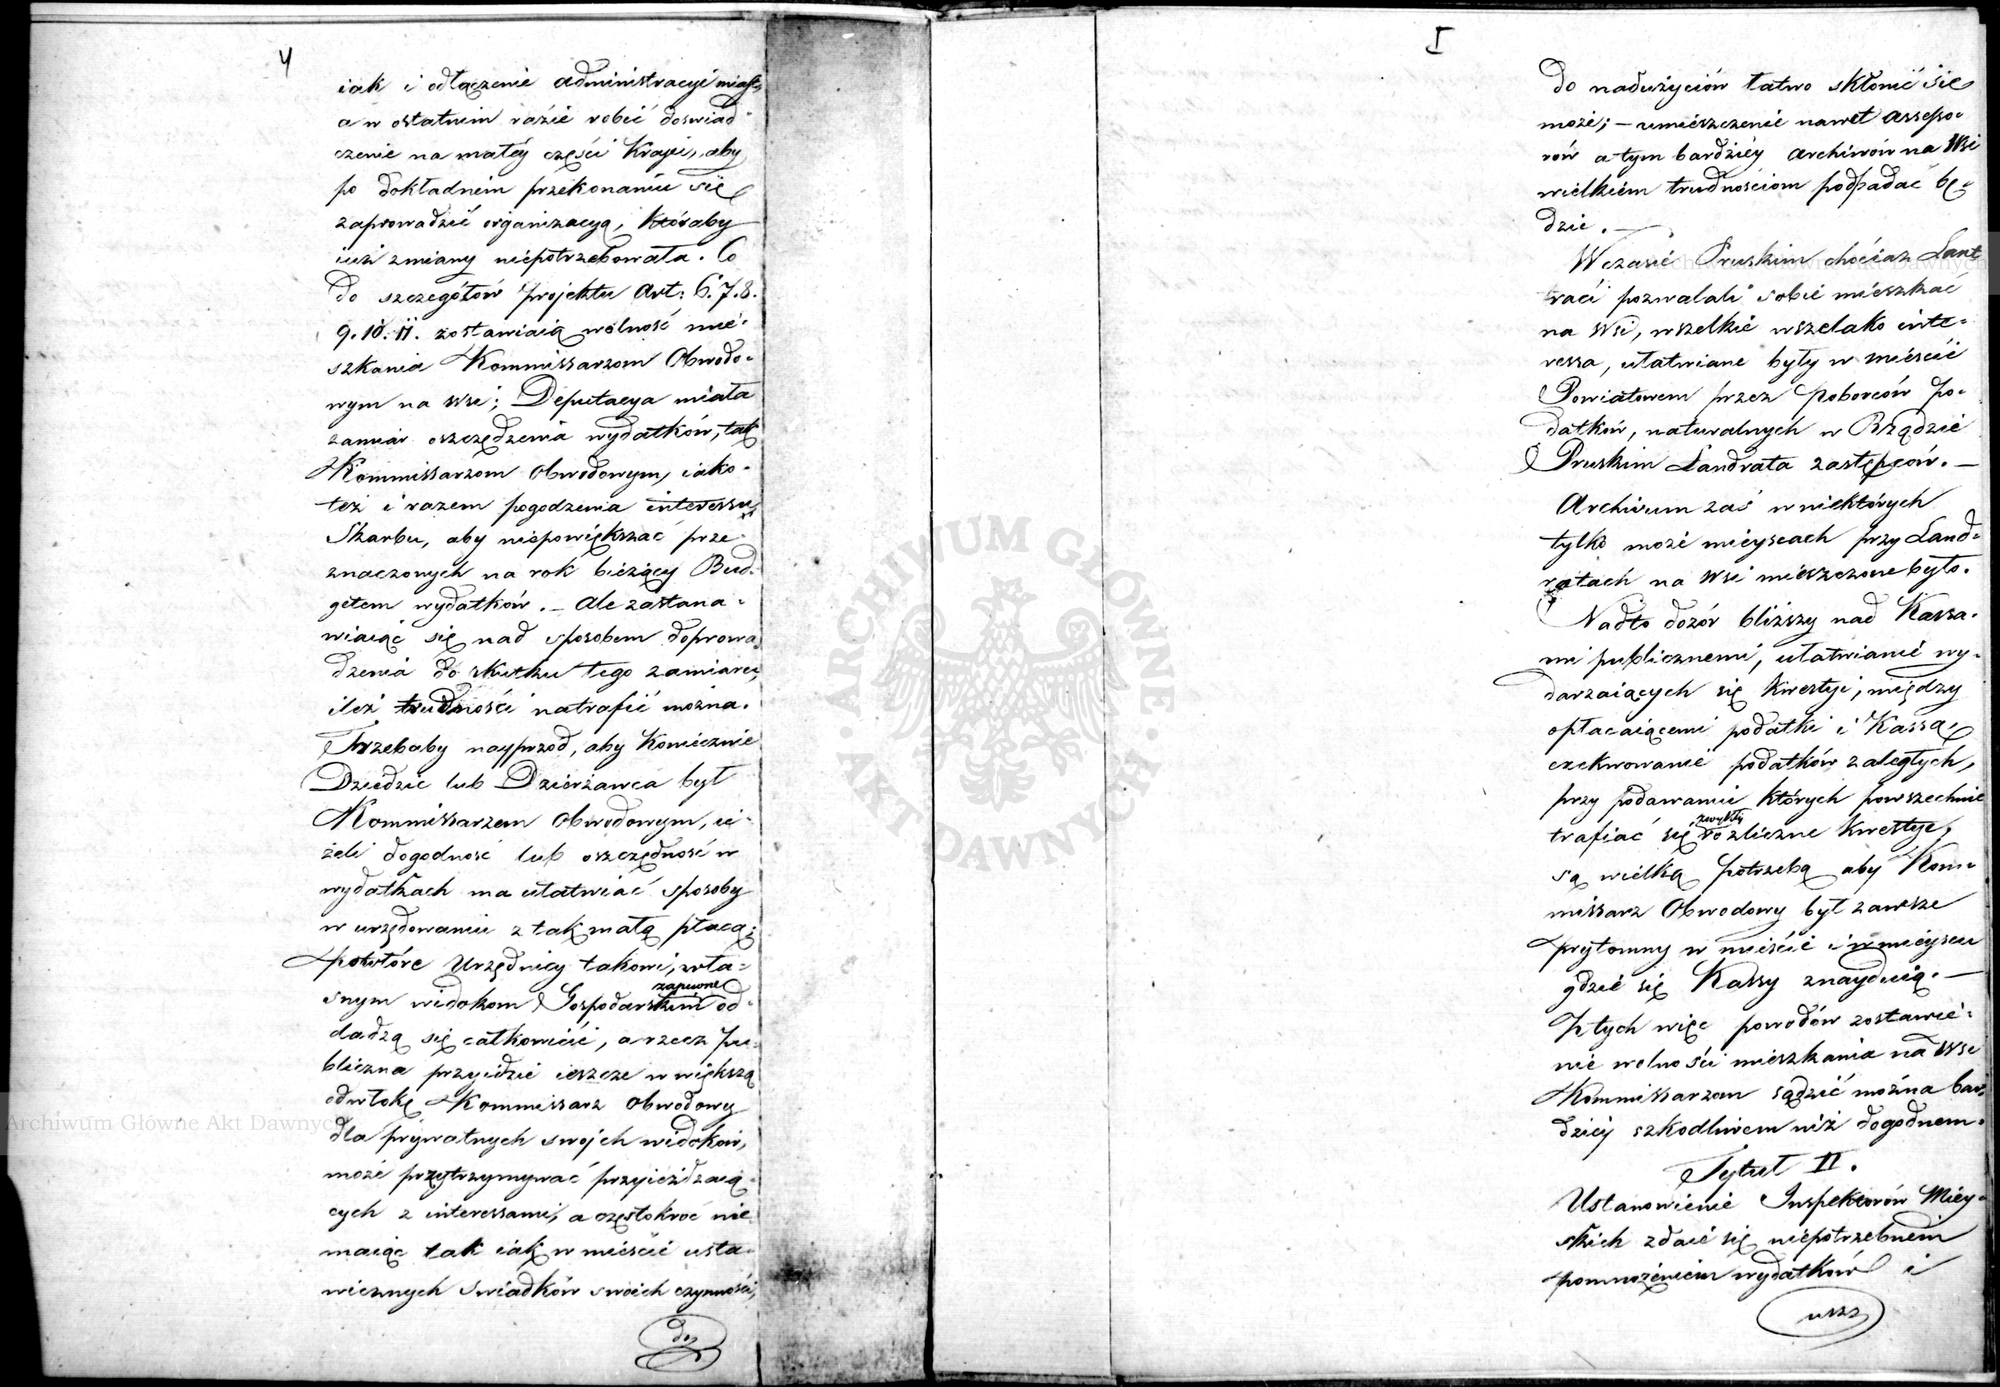 4
iak i odłączenie administracyi miast,
a w ostatnim razie robić doswiad-
czenie na małey części Kraju, aby
po dokładnem przekonaniu się
zaprowadzić organizacyą, któraby
iuż zmiany niepotrzebowała. Co
do szczegółów projektu Art: 6. 7. 8.
9. 10. 11. zostawiaią wolność mie-
szkania Kommissarzom Obwodo-
wym na wsi; Deputacya miała
zamiar oszczędzenia wydatków, tak
Kommissarzom Obwodowym, iako-
też i razem pogodzenia interessu
Skarbu, aby niepowiększać prze-
znaczonych na rok bieżący Bud-
getem wydatków. – Ale zastana-
wiaiąc się nad sposobem doprowa-
dzenia do skutku tego zamiaru,
ileż trudności natrafić można.
Trzebaby nayprzod, aby koniecznie
Dziedzic lub Dzierżawca był
Kommissarzem Obwodowym, ie-
żeli dogodność lub oszczędność w
wydatkach ma ułatwiać sposoby
w urzędowaniu z tak małą płacą;
powtóre Urzędnicy takowi, wła-
snym widokom Gospodarskim zapewne od-
dadzą się całkowicie, a rzecz pu-
bliczna przyidzie ieszcze w większą
odwłokę Kommissarz Obwodowy
dla prywatnych swoich widoków,
może przytrzymywać przyieżdzaią-
cych z interessami, a częstokroć nie
maiąc tak iak w mieście usta-
wicznych swiadków swoich czynności,
do
5
do nadużyciów łatwo skłonić się
może; – umieszczenie nawet Assesso-
rów a tym bardziey Archiwów na wsi
wielkiem trudnościom podpadać bę-
dzie. –
W czasie Pruskim chociaz Lant
raci pozwalali sobie mieszkać
na wsi, wszelkie wszelako inte-
ressa, ułatwiane były w mieście
Powiatowem przez Poborców po-
datków, naturalnych w Rządzie
Pruskim Landrata zastępców. –
Archiwum zaś w niektórych
tylko może mieyscach przy Land-
ratach na wsi mieszczone było.
Nadto dozór bliższy nad Kassa-
mi publicznemi, ułatwianie wy-
darzaiących się kwestyi, między
opłacaiącemi podatki i Kassą,
exekwowanie podatków zaległych,
przy podawaniu których powszechnie
trafiać się zwykły rozliczne kwestye,
są wielką potrzebą aby Kom-
missarz Obwodowy był zawsze
przytomny w mieście i w mieyscu
gdzie się Kassy znayduią. –
Z tych więc powodów zostawie-
nie wolności mieszkania na wsi
Kommissarzom sądzić można bar-
dziey szkodliwem niż dogodnem.
Tytuł II.
Ustanowienie Inspektorów Miey-
skich zdaie się niepotrzebnem
pomnożeniem wydatków i
Archiwum Główne Akt Dawnych
ARCHIWUM GŁÓWNE · AKT DAWNYCH ·